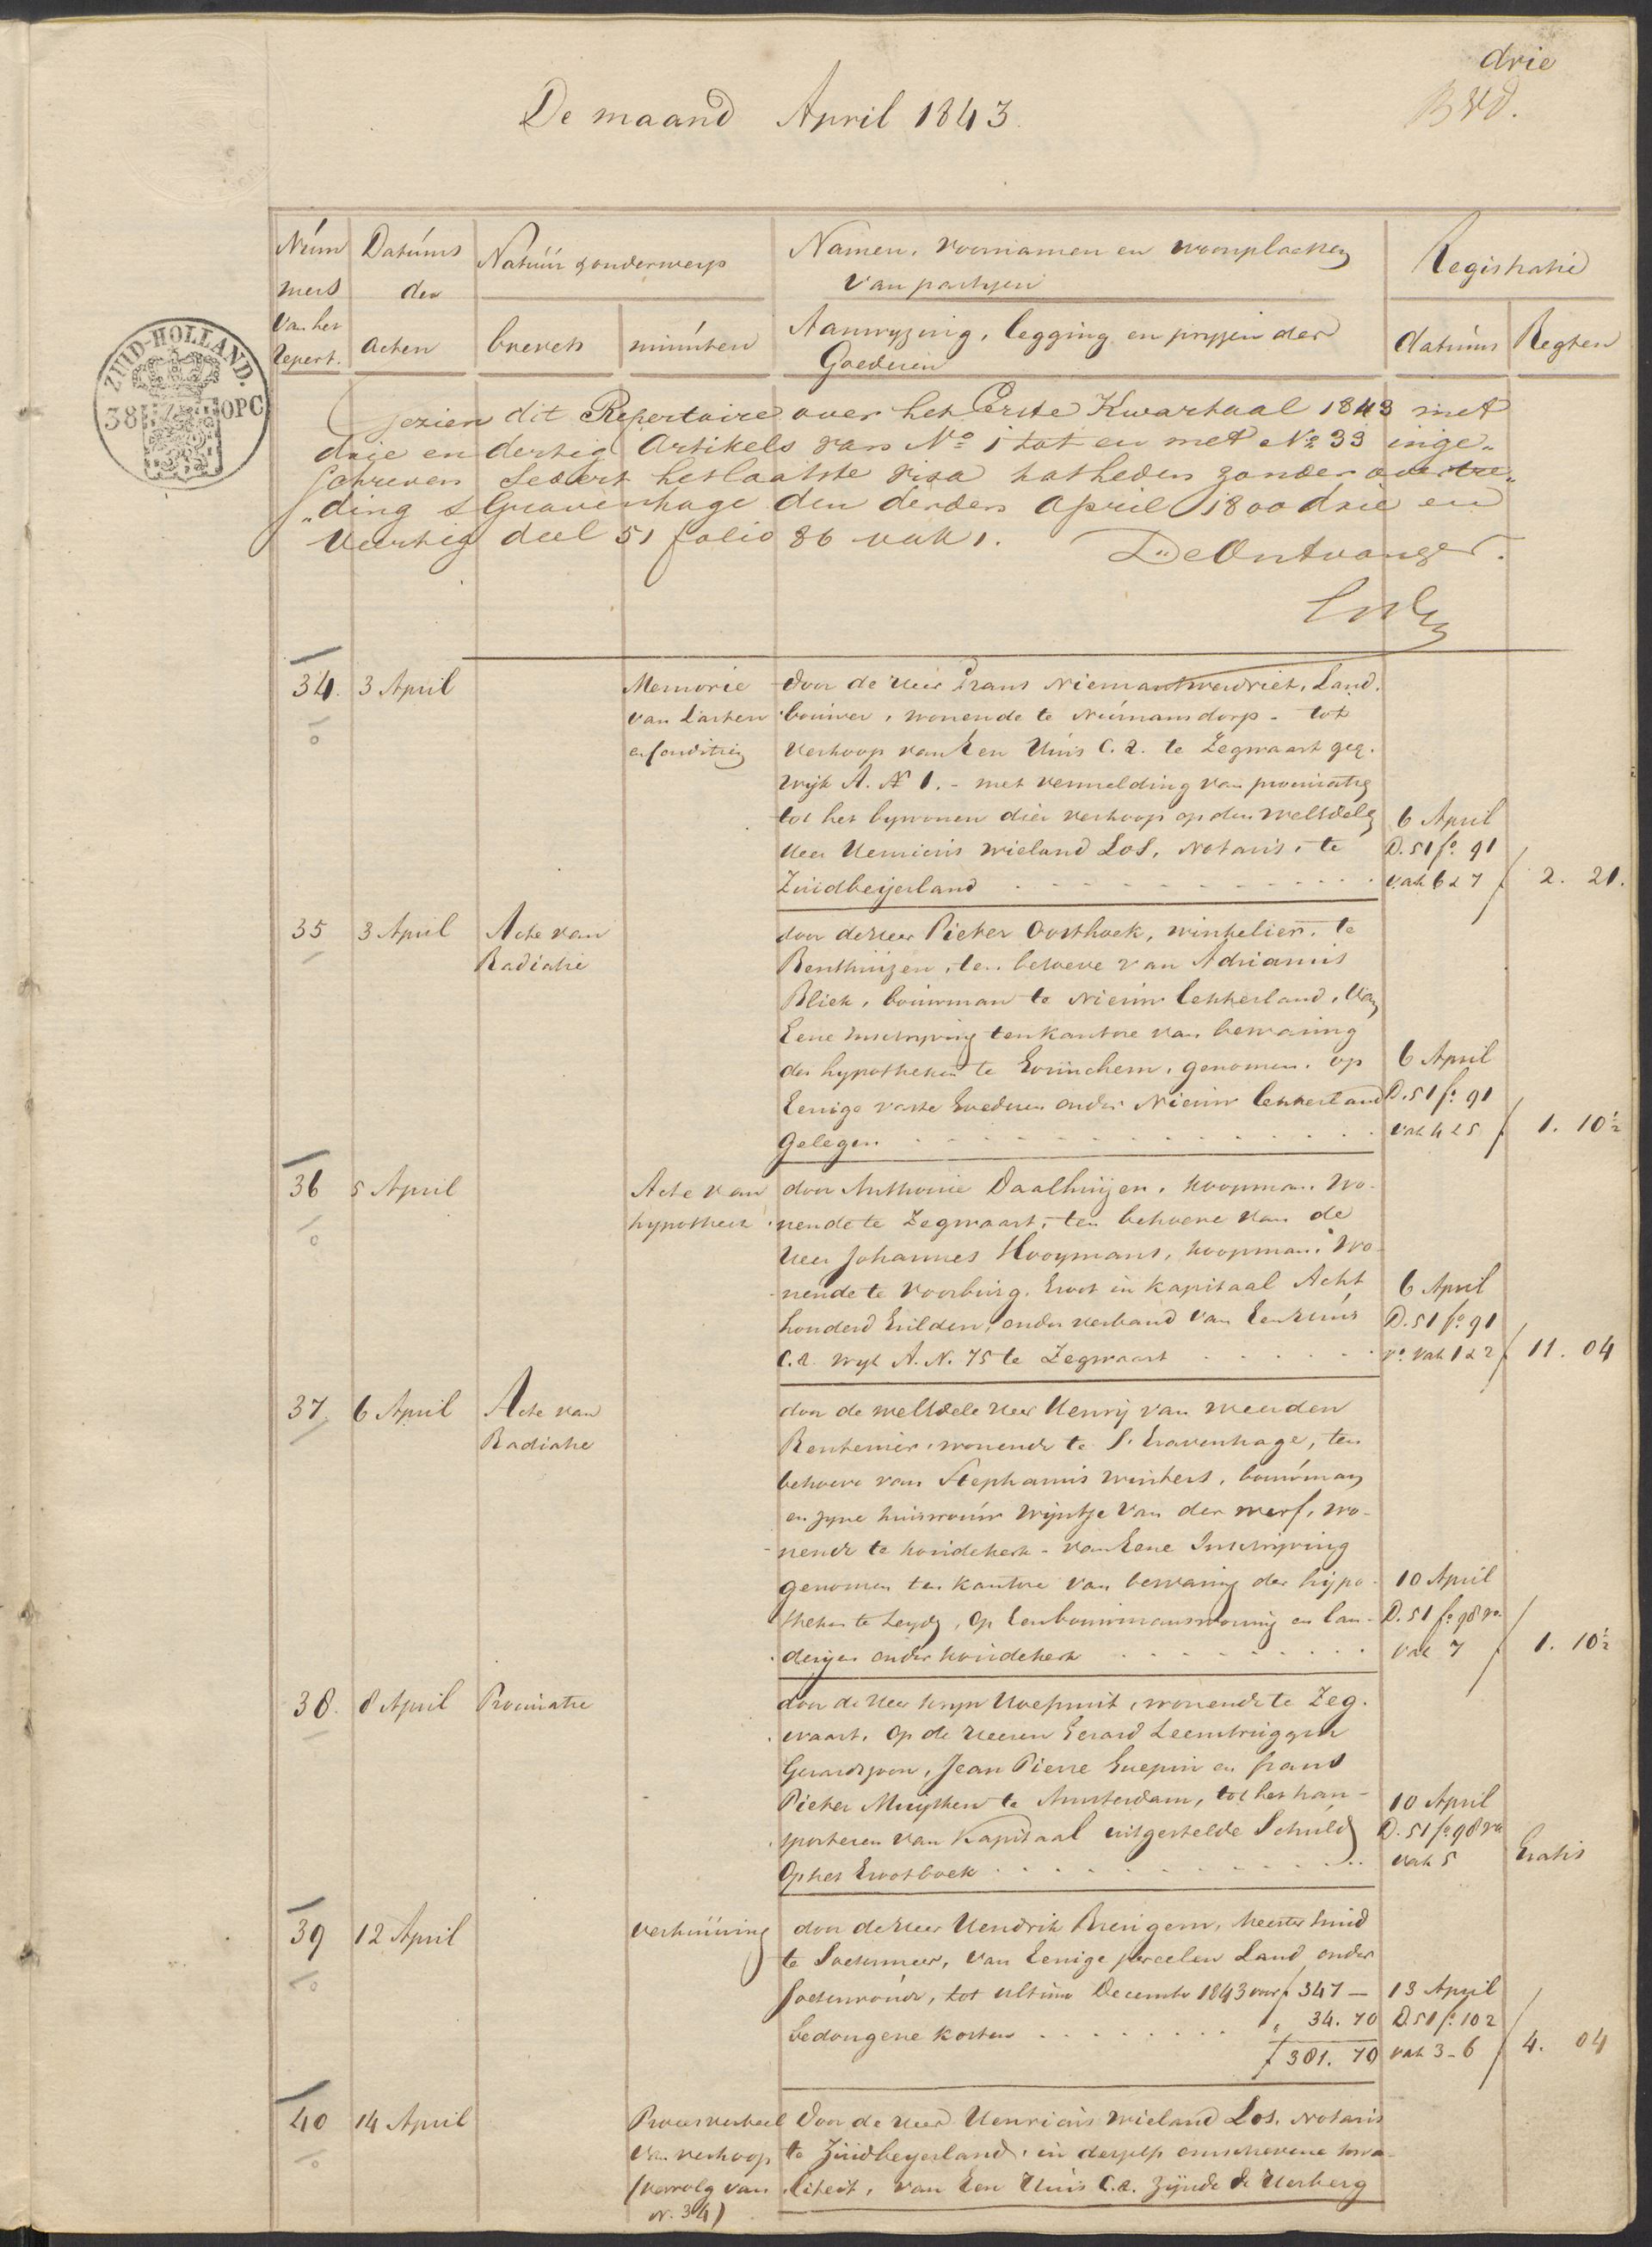 drie
De maand April 1843.
Num
mers
van het
Repert.
Datums
der
acten
Natuur & onderwerp
brevets
minuten
Namen, voornamen en woonplaatsen
van partyen
Aanwyzing, legging en pryzen der
Goederen
Registratie
datums
Regten
ZUID-HOLLAND.
38 OPC
Gezien dit Repertoire over het Eerste Kwartaal 1843 met
drie en dertig Artikels van No 1 tot en met No 33 inge„
schreven sedert het laatste visa tot heden zonder overtre„
„ding s Gravenhage den derden April 1800 drie en
Veertig deel 51 folio 86 vak 1.
De Ontvanger.
34. 3 April
Memorie
van Lasten
en Conditien
door de Heer Frans Niemantsverdriet, Land.
bouwer, wonende te Numansdorp - tot
verkoop van Een Huis C.A. te Zegwaart geq.
wyk A. No 1. - met vermelding van procuratie
tot het bywonen dier verkoop op den WelEdelen
Heer Henricus Wieland Los, Notaris, te
Zuidbeijerland
6 April
D. 51 fo 91
vak 6 & 7
f 2. 21.
35 3 April
Acte van
Radiatie
door de Heer Pieter Oosthoek, winkelier, te
Benthuizen, ten behoeve van Adrianus
Bliek, bouwman te Nieuw Lekkerland, van
Eene Inschryving ten kantore van bewaring
der hypotheken te Gorinchem, genomen, op
Eenige vaste Goederen onder Nieuw Lekkerland
gelegen
6 April
D. 51 fo 91
vak 4 & 5
f 1. 10½
36 5 April
Acte van
hypotheek
door Anthonie Daalhuijzen, koopman, wo-
nende te Zegwaart, ten behoeve van de
Heer Johannes Hooymans, koopman, wo-
nende te Voorburg, Groot in kapitaal Acht
honderd Gulden, onder verband van Een Huis
C.A. wyk A. N. 75 te Zegwaart
6 April
D. 51 fo 91
vo vak 1 & 2
f 11. 04
37. 6 April
Acte van
Radiatie
door de WelEdele Heer Henrij van Weerden
Rentenier, wonende te S. Gravenhage, ten
behoeve van Stephanus Winters, bouwman
en zyne huisvrouw Wijntje van der Werf, wo-
nende te Koudekerk - van Eene Inschryving
genomen ten kantore van bewaring der hypo-
theken te Leyden, op Een bouwmanswoning en lan-
deryen onder Koudekerk
10 April
D. 51 fo 98 vo
vak 7
f 1. 10½
38. 8 April
Procuratie
door de Heer Kryn Hoefsmit, wonende te Zeg-
waart, op de Heeren Gerard Leembruggen
Gerardszoon, Jean Pierre Guepin en Frans
Pieter Muijsken te Amsterdam, tot het tran-
sporteren van Kapitaal uitgestelde Schuld
op het Grootboek
10 April
D. 51 fo 98 vo
vak 5
Gratis
39 12 April
verhuuring
door de Heer Hendrik Brengem, Meester Smid
te Soetermeer, van Eenige perceelen Land onder
Soeterwoude, tot ultimo December 1843 voor f 347 —
bedongene kosten „ 34. 70
f 381. 70
13 April
D. 51 fo 102
vak 3-6
f 4. 04
40 14 April
Proces verbaal
van verkoop
(vervolg van
N. 34)
door de Heer Henricus Wieland Los, Notaris
te Zuidbeyerland, in deszelfs omschrevene kwa-
liteit, van Een Huis C.A. zynde de Herberg